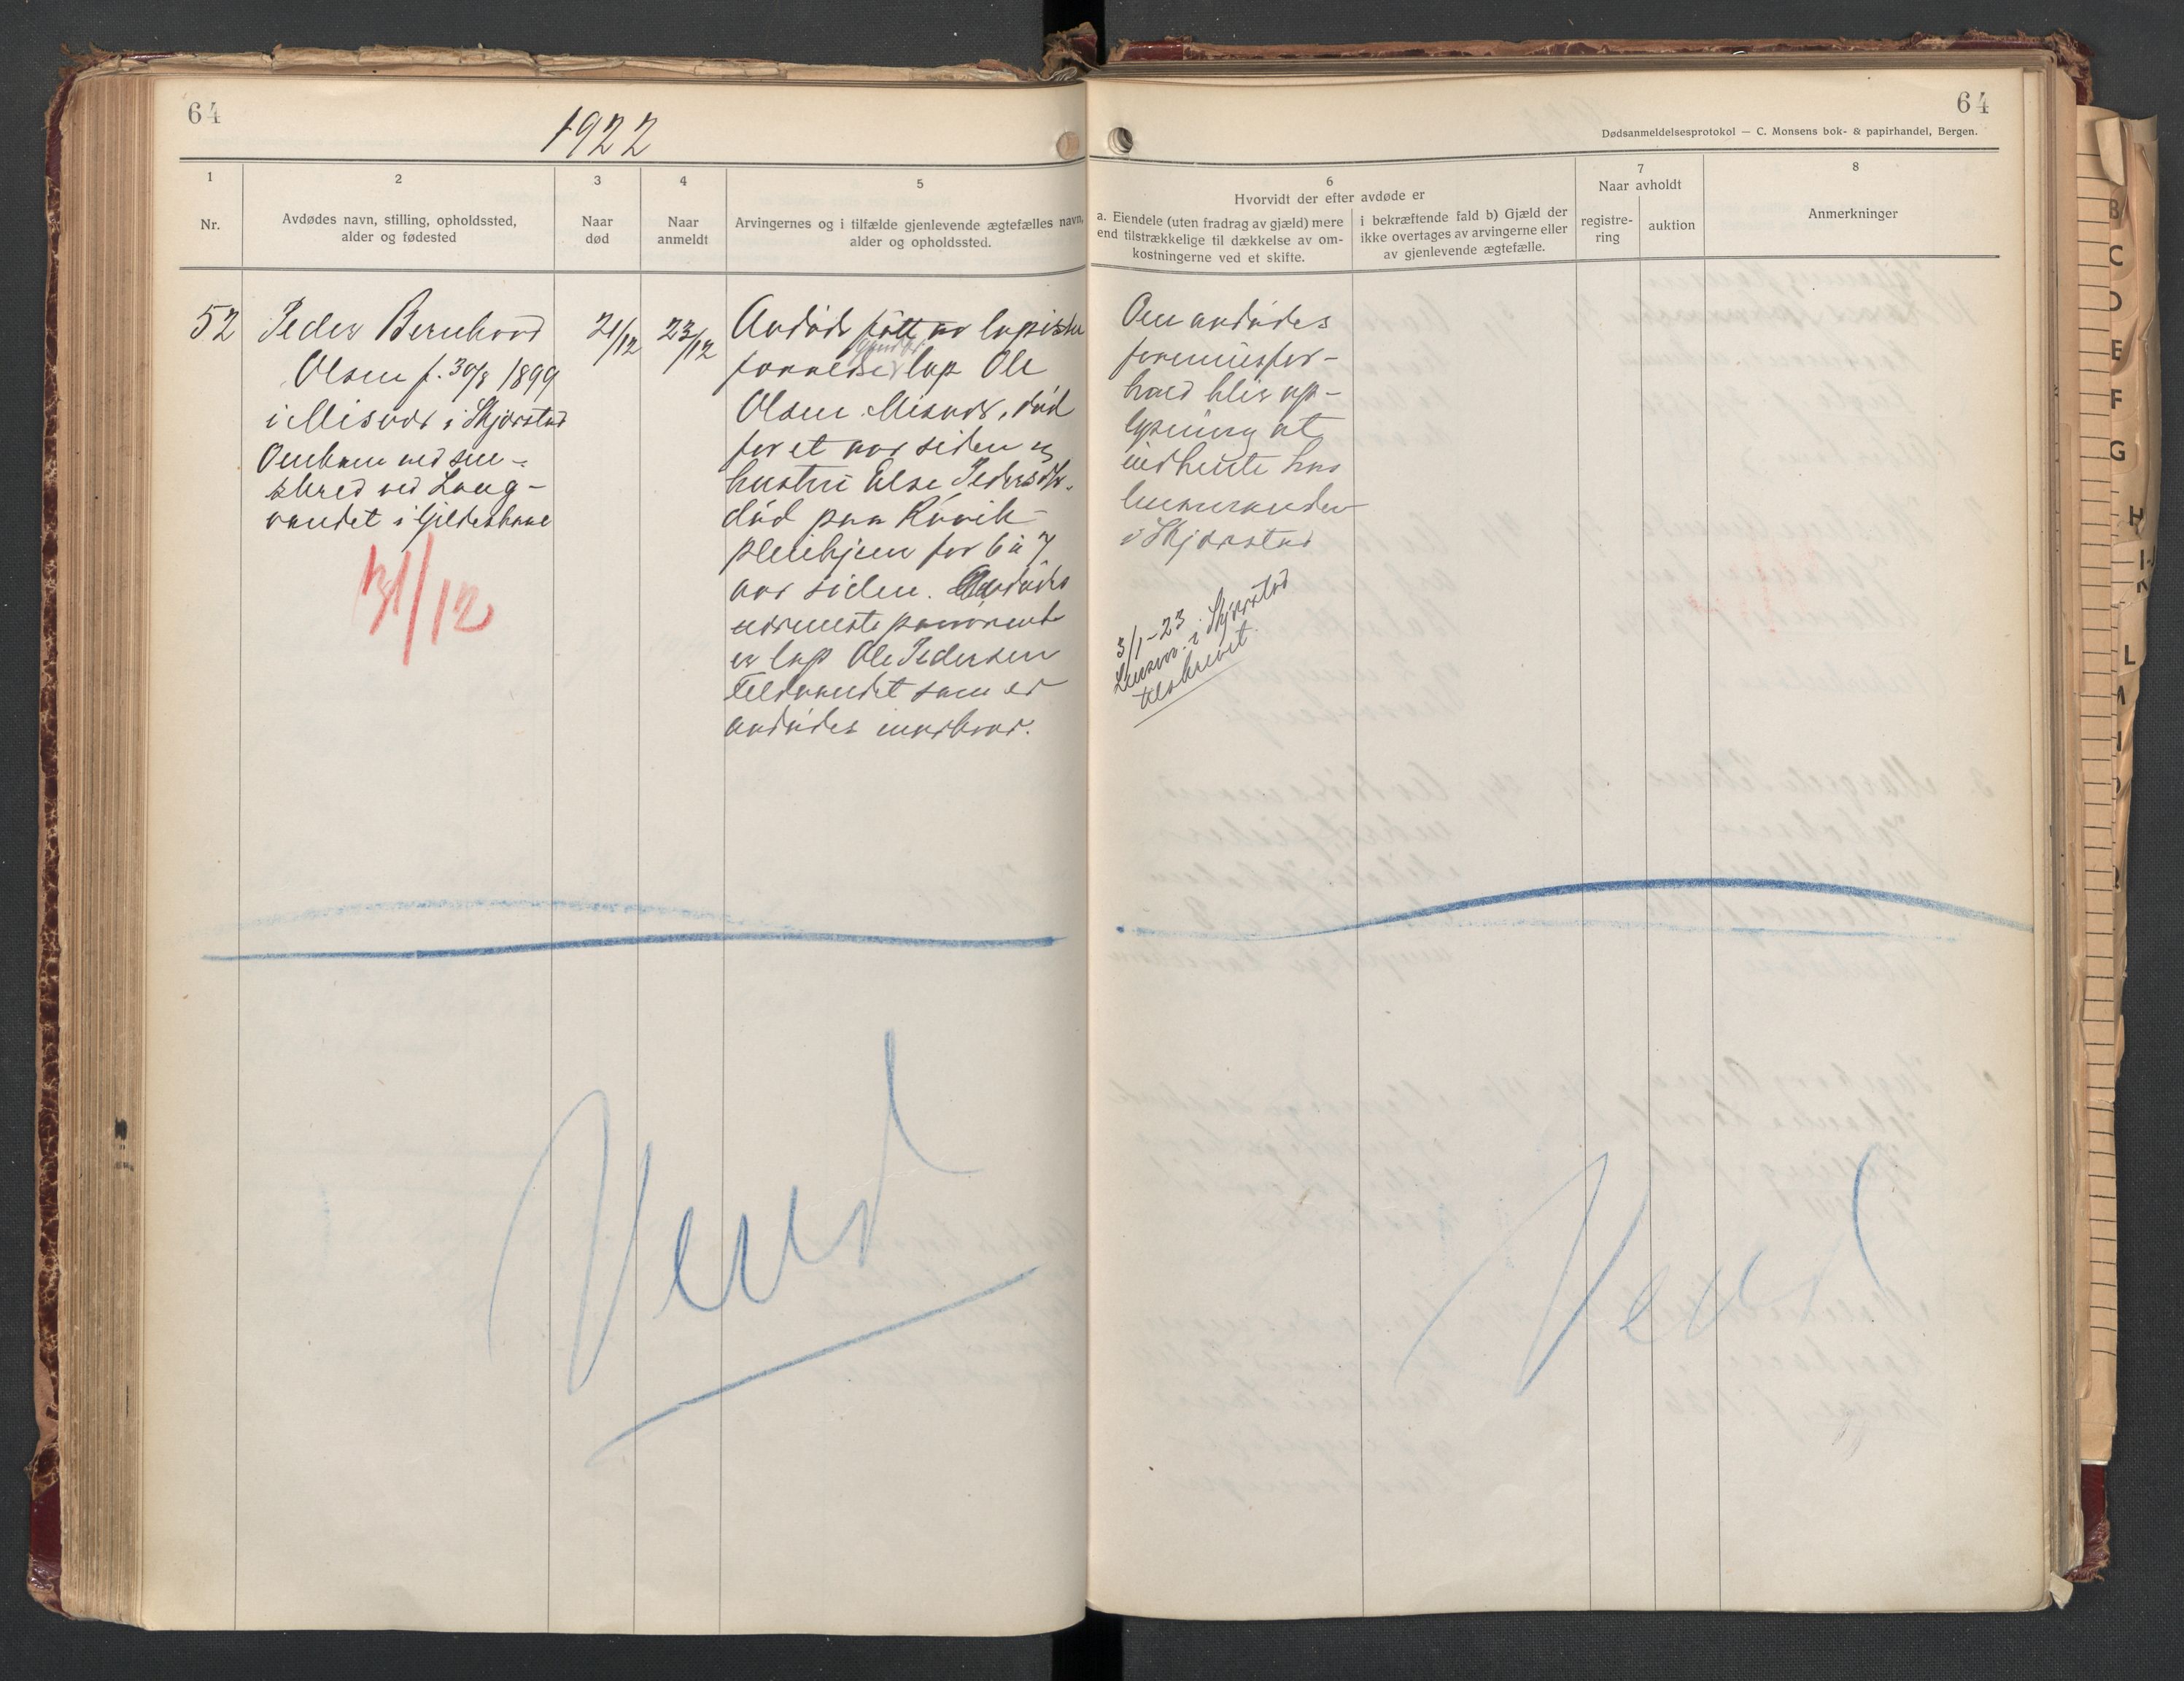 64
1922
1
Nr.
2
Avdødes navn, stilling, opholdssted,
alder og fødested
3
Naar
død
4
Naar
anmeldt
5
Arvingernes og i tilfælde gjenlevende ægtefælles navn,
alder og opholdssted.
52
Peder Bernhard
Olsen f. 30/8 1899
i Misvær i Skjerstad
Omkom ved sne-
skred ved Lang-
vandet i Gildeskaal
31/12
21/12
23/12
Avdøde født av lapiske
forældre lap Ole
Olsen Misvær, død
for et aar siden og
hustru Else Pedersdtr.
død paa Rønvik
pleiehjem for 6 à 7
aar siden. Avdødes
nærmeste paarørende
er lap Ole Pedersen
som er
avdødes morbror.
Vend
64
Dødsanmeldelsesprotokol — C. Monsens bok- & papirhandel, Bergen.
6
Hvorvidt der efter avdøde er
a. Eiendele (uten fradrag av gjæld) mere
end tilstrækkelige til dækkelse av om-
kostningerne ved et skifte.
i bekræftende fald b) Gjæld der
ikke overtages av arvingerne eller
av gjenlevende ægtefælle.
7
Naar avholdt
registre-
ring
auktion
8
Anmerkninger
Om avdødes
formuesfor-
hold blir op-
lysning at
indhente hos
lensmanden
i Skjerstad
3/1-23
Lensm. i Skjerstad
tilskrevet.
Vend
B
C
D
E
F
G
H
L